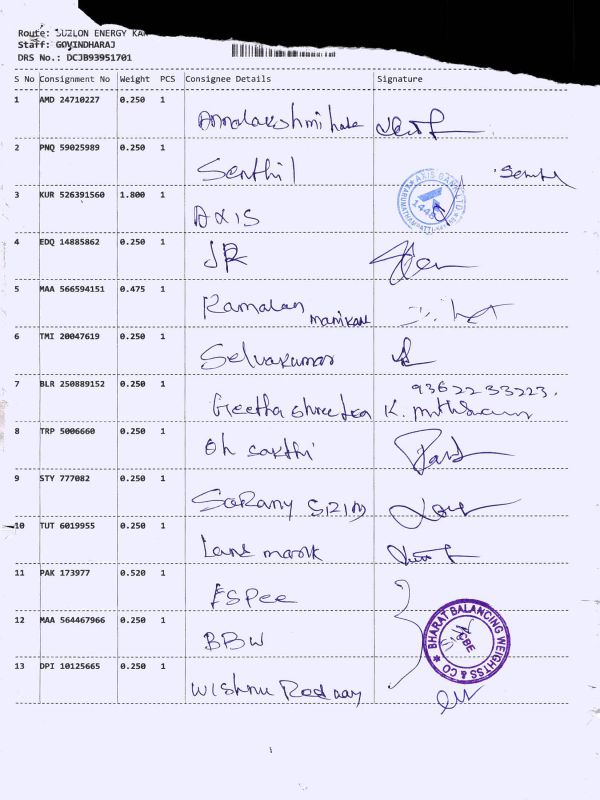 Route: SUZLON ENERGY KAN
Staff: GOVINDHARAJ
DRS No.: DCJB93951701
S No Consignment No Weight PCS Consignee Details Signature
1 AMD 24710227 0.250 1
2 PNQ 59025989 0.250 1 Senthil Senthil
3 KUR 526391560 1.800 1 AXIS AXIS BANK LTD
4 EDQ 14885862 0.250 1 JR
5 MAA 566594151 0.475 1 Ramalan
6 TMI 20047619 0.250 1 Selvakumar
7 BLR 250889152 0.250 1 Geetha 93622 33223.
8 TRP 5006660 0.250 1 Oh sakthi
9 STY 777082 0.250 1
10 TUT 6019955 0.250 1 Land mark
11 PAK 173977 0.520 1 ESPee
12 MAA 564467966 0.250 1 BBW BHARAT BALANCING WEIGHTSS & CO CBE
13 DPI 10125665 0.250 1